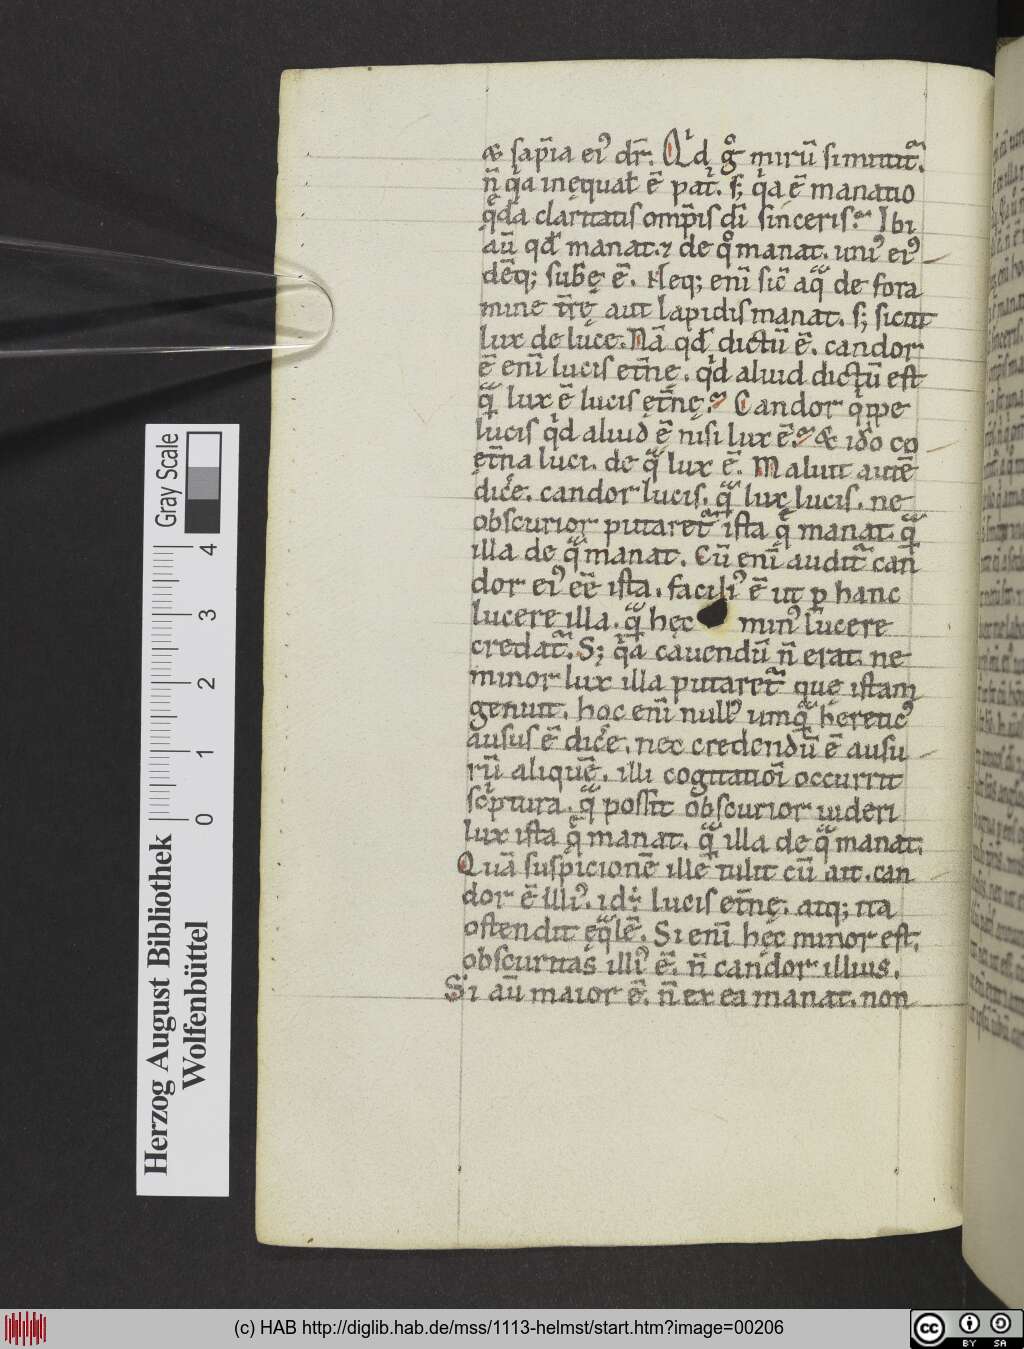 & sap̄ia ei᷒ dr̄. Qͥd gͦ mirū si mittit᷑.
n̄ qͥa inęqual' ē pat̄. s; qͥa ē manatio
qͣdā claritatis omp̄is dī sinceris. Ibi
aū qd̄ manat. ⁊ de qͦ manat. uni᷒ ei᷒
dēq; sub̄ę ē. Neq; enī sic̄ aqͣ de fora
mine t̄rę aut lapidis manat. s; sicut
lux de luce. Nā qd̄ dictū ē. candor
ē enī lucis et̄nę. qͥd aliud dictū est
qͣ lux ē lucis ęt̄nę. Candor qͥppe
lucis qͥd aliud ē nisi lux ē. & idō co
et̄na luci. de qͣ lux ē. Maluit autē
dic̄e. candor lucis. qͣ lux lucis. ne
obscurior putaret᷑ ista qͤ manat. qͣ
illa de qͣ manat. Cū enī audit᷑ can
dor ei᷒ eē ista. facili᷒ ē ut p hanc
lucere illa. qͣ hęc min᷒ lucere
credat᷑. S; qͥa cauendū n̄ erat. ne
minor lux illa putaret᷑ quę istam
genuit. hoc enī null᷒ umqͣ heretic᷒
ausus ē dic̄e. nec credendū ē ausu
rū aliquē. illi cogitatiōi occurrit
scͥptura. qͣ possit obscurior uideri
lux ista qͤ manat. qͣ illa de qͣ manat.
Quā suspicionē ille tulit cū ait. can
dor ē illi᷒. id: lucis et̄nę. atq; ita
ostendit ęqͣlē. Si enī hęc minor est.
obscuritas illi᷒ ē. n̄ candor illius.
Si aū maior ē. n̄ ex ea manat. non
Gray Scale
4 3 2 1 0
Herzog August Bibliothek
Wolfenbüttel
(c) HAB http://diglib.hab.de/mss/1113-helmst/start.htm?image=00206
cc BY SA